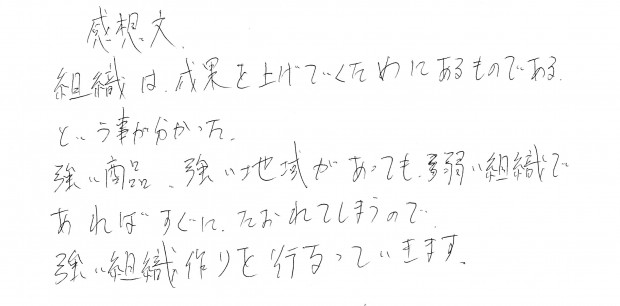 感想文.
組織は、成果を上げていくためにあるものである.
という事が分かった.
強い商品、強い地域があっても、弱い組織で
あればすぐに、たおれてしまうので.
強い組織作りを行なっていきます.